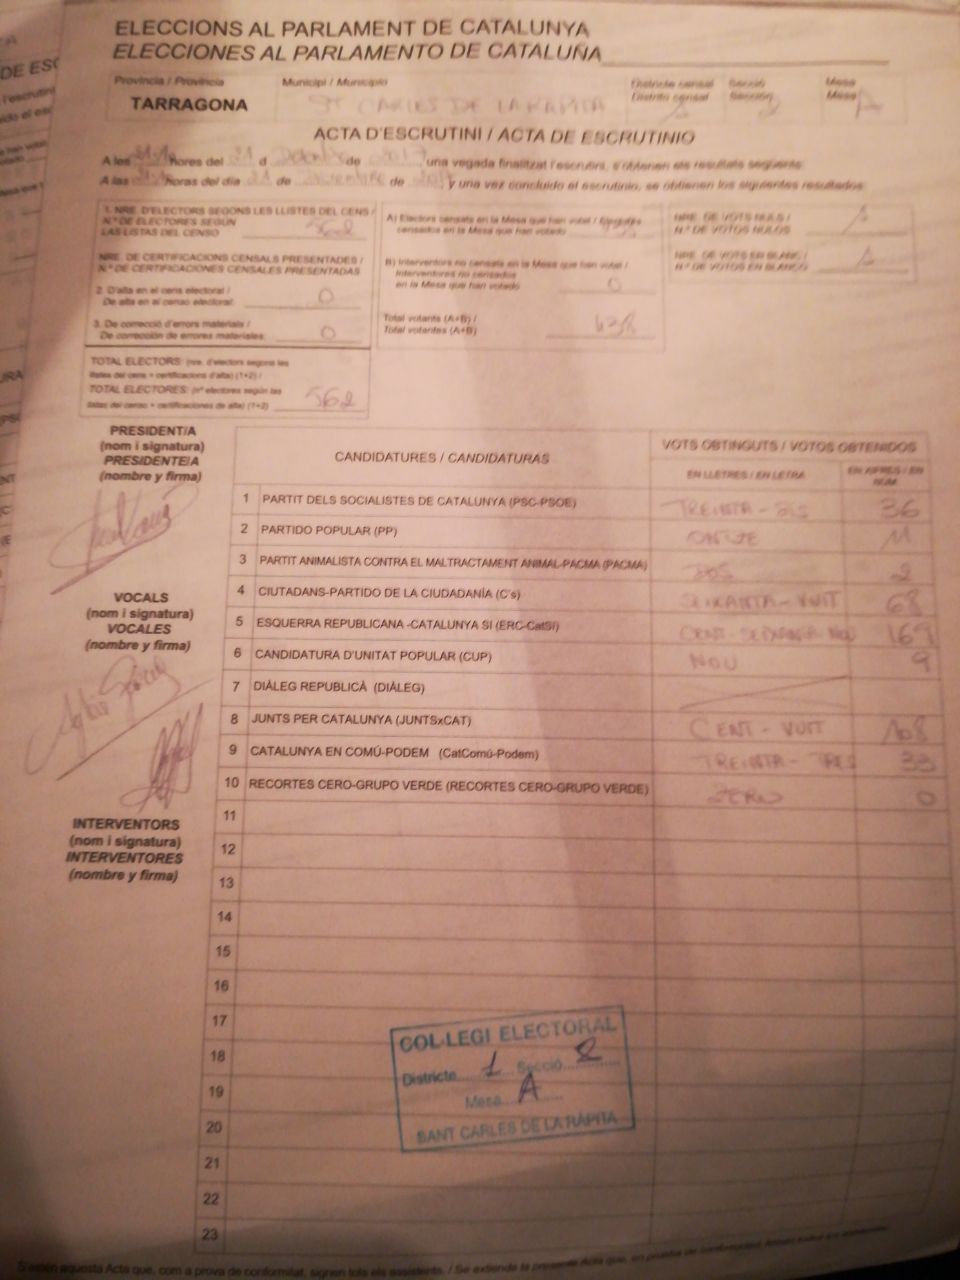 ELECCIONS AL PARLAMENT DE CATALUNYA
ELECCIONES AL PARLAMENTO DE CATALUÑA
Província / Provincia
TARRAGONA
Municipi / Municipio
ST CARLES DE LA RAPITA
Districte censal
Distrito censal
Secció
Sección
Mesa
Mesa
A
ACTA D'ESCRUTINI / ACTA DE ESCRUTINIO
A les hores del 21 d de 2017, una vegada finalitzat l'escrutini, s'obtenen els resultats següents:
A las horas del día 21 de Diciembre de y una vez concluido el escrutinio, se obtienen los siguientes resultados:
1. NRE. D'ELECTORS SEGONS LES LLISTES DEL CENS /
N.º DE ELECTORES SEGÚN
LAS LISTAS DEL CENSO 562
NRE. DE CERTIFICACIONS CENSALS PRESENTADES /
N.º DE CERTIFICACIONES CENSALES PRESENTADAS
2. D'alta en el cens electoral /
De alta en el censo electoral: 0
3. De correcció d'errors materials /
De corrección de errores materiales: 0
TOTAL ELECTORS: (nre. d'electors segons les
llistes del cens + certificacions d'alta) (1+2) /
TOTAL ELECTORES: (nº electores según las
listas del censo + certificaciones de alta) (1+2) 562
A) Electors censats en la Mesa que han votat / Electores
censados en la Mesa que han votado
B) Interventors no censats en la Mesa que han votat /
Interventores no censados
en la Mesa que han votado 0
Total votants (A+B) /
Total votantes (A+B) 438
NRE. DE VOTS NULS /
N.º DE VOTOS NULOS
NRE. DE VOTS EN BLANC /
N.º DE VOTOS EN BLANCO
PRESIDENT/A
(nom i signatura)
PRESIDENTE/A
(nombre y firma)
VOCALS
(nom i signatura)
VOCALES
(nombre y firma)
INTERVENTORS
(nom i signatura)
INTERVENTORES
(nombre y firma)
CANDIDATURES / CANDIDATURAS
VOTS OBTINGUTS / VOTOS OBTENIDOS
EN LLETRES / EN LETRA
EN XIFRES / EN
NUM
1 PARTIT DELS SOCIALISTES DE CATALUNYA (PSC-PSOE) TREINTA-SIS 36
2 PARTIDO POPULAR (PP) ONTZE 11
3 PARTIT ANIMALISTA CONTRA EL MALTRACTAMENT ANIMAL-PACMA (PACMA) DOS 2
4 CIUTADANS-PARTIDO DE LA CIUDADANÍA (C's) SEIXANTA-VUIT 68
5 ESQUERRA REPUBLICANA -CATALUNYA SI (ERC-CatSí) CENT NOU 169
6 CANDIDATURA D'UNITAT POPULAR (CUP) NOU 9
7 DIÀLEG REPUBLICÀ (DIÀLEG)
8 JUNTS PER CATALUNYA (JUNTSxCAT) CENT-VUIT 108
9 CATALUNYA EN COMÚ-PODEM (CatComú-Podem) TREINTA-TRES 33
10 RECORTES CERO-GRUPO VERDE (RECORTES CERO-GRUPO VERDE) ZERO 0
11
12
13
14
15
16
17
18
19
20
21
22
23
COL·LEGI ELECTORAL
Districte 1 Secció 2
Mesa A
SANT CARLES DE LA RÀPITA
S'estén aquesta Acta que, com a prova de conformitat, signen tots els assistents. / Se extiende la presente Acta que, en prueba de conformidad,